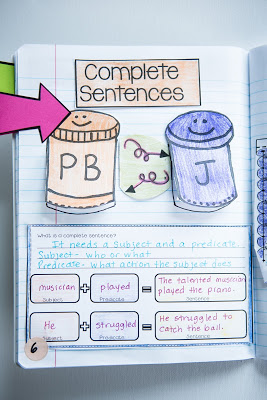 Complete
Sentences
PB
J
What is a complete sentence?
It needs a subject and a predicate.
Subject- who or what
Predicate- what action the subject does
musician + played = The talented musician
played the piano.
Subject Predicate Sentence
He + struggled = He struggled to
catch the ball.
Subject Predicate Sentence
6